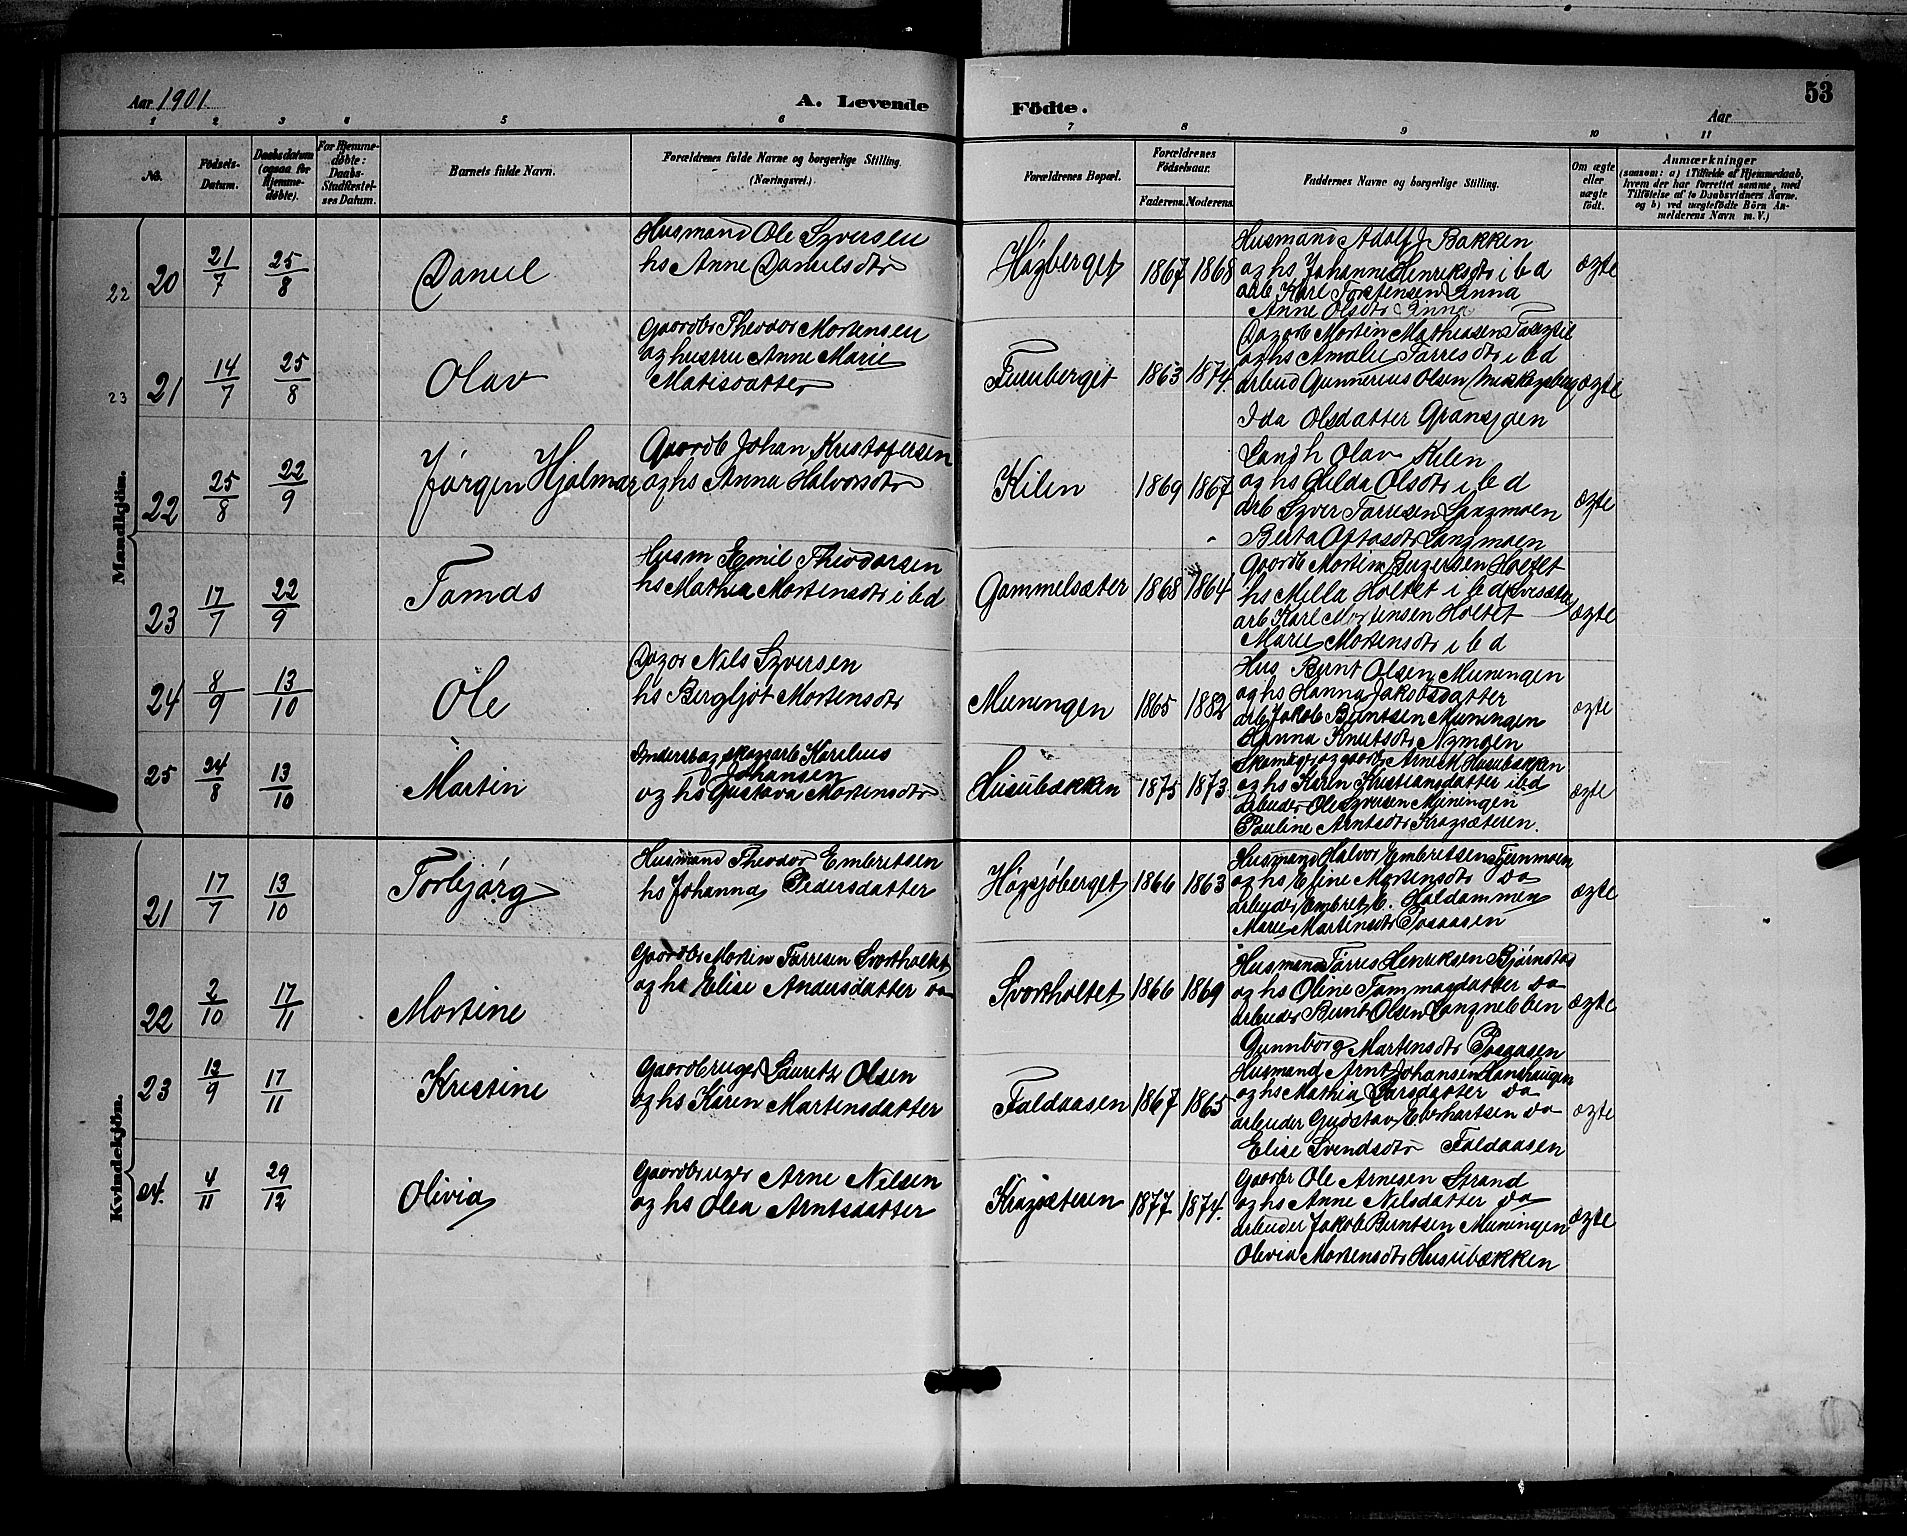 Aar 1901
A. Levende
Födte.
53
Aar
1 2 3 4 5 6 7 8 9 10 11
No.
Födsels-
Datum.
Daabsdatum
(ogsaa for
Hjemme-
døbte).
For Hjemme-
døbte:
Daabs-
Stadfæstel-
ses Datum.
Barnets fulde Navn.
Forældrenes fulde Navne og borgerlige Stilling.
(Næringsvei.)
Forældrenes Bopæl.
Forældrenes
Födselsaar.
Faderens. Moderens.
Faddernes Navne og borgerlige Stilling.
Om ægte
eller
uægte
født.
Anmærkninger
(saasom: a) i Tilfælde af Hjemmedaab,
hvem der har forrettet samme, med
Tilføielse af to Daabsvidners Navne.
og b) ved uægtefødte Börn An-
melderens Navn m. V.)
Mandkjön.
22 20 21/7 25/8 Daniel
Husmand Ole Syversen
hs Anne Danielsdtr
Høgberget 1867 1868
Husmand Adolf J Bakken
og hs Johanne Henriksdtr i b d
arb Karl Torstensen Linna
Anne Olsdtr Linna
ægte
23 21 14/7 25/8 Olav
Gaardbr Theodor Mortensen
og hustru Anne Marie
Matisdatter
Furuberget 1863 1874.
Dagarb Morten Mathiasen
og hs Amalie Tørresdtr i b d
arbeid Gunnerius Olsen
Ida Olsdatter Gransjøen
ægte
22 25/8 22/9 Jörgen Hjalmar
Gaardb Johan Kristofersen
og hs Anna Halvorsdtr
Kilen 1869 1867
Landh Olav Kilen
og hs Hilda Olsdtr i b d
arb Syver Tørresen Langmoen
Berta Ottosdtr Langmoen
ægte
23 17/7 22/9 Tomas
Husm Emil Theodorsen
hs Mathea Mortensdtr i b d
Gammelsæter 1868 1864
Gaardb Mortin Birgersen Holtet
hs Milla Holtet i b d
arb Karl Mortensen Holtet
Marie Mortensdtr i b d
ægte
24 8/9 13/10 Ole
Dagar Nils Syversen
hs Bergljot Mortensdtr
Muningen 1865 1882
Hus Bernt Olsen Muningen
og hs Hanna Jakobsdatter
arb Jakob Berntsen Muningen
Hanna Knutsdtr Nymoen
ægte
25 24/8 13/10 Martin
Inderst og skogarb Karelius
Johansen
og hs Gustava Mortensdtr
Husubækken 1875 1873
Arne M Husubækken
og hs Karen Kristiansdatter ibd
arbeider Ole Syversen Muningen
Pauline Arntsdtr Kragsæteren.
ægte
Kvindekjön.
21 17/7 13/10 Torbjörg
Husmand Theodor Embretsen
hs Johanna Pedersdatter
Høgsjøberget 1866 1863
Husmand Halvor Embretsen
og hs Eline Mortensdtr do
arbeider Embret E. Haldammen
Marie Martinsdtr Posaasen
ægte
22 2/10 17/11 Martine
Gaardbr Mortin Tørresen Svartholtet
og hs Elise Andersdatter do
Svartholtet 1866 1869
Husmand Tørres Henriksen
og hs Oline Tommasdatter do
arbeider Bernt Olsen
Gunnborg Martensdtr Posaasen
ægte
23 12/9 17/11 Kristine
Gaardbruger Lauritz Olsen
og hs Karen Martensdatter
Faldaasen 1867 1865
Husmand Arnt Johansen
og hs Mathia Larsdatter do
arbeider Gustav Everhartsen do
Elise Svendsdtr Faldaasen
ægte
24. 4/11 29/12 Olivia
Gaardbruger Arne Nilsen
og hs Olea Arntsdatter
Kragsæteren 1877 1874.
Gaardbr Ole Arnesen Strand
og hs Anne Nilsdatter do
arbeider Jakob Berntsen Muningen
Olivia Mortensdtr Husubækken
ægte